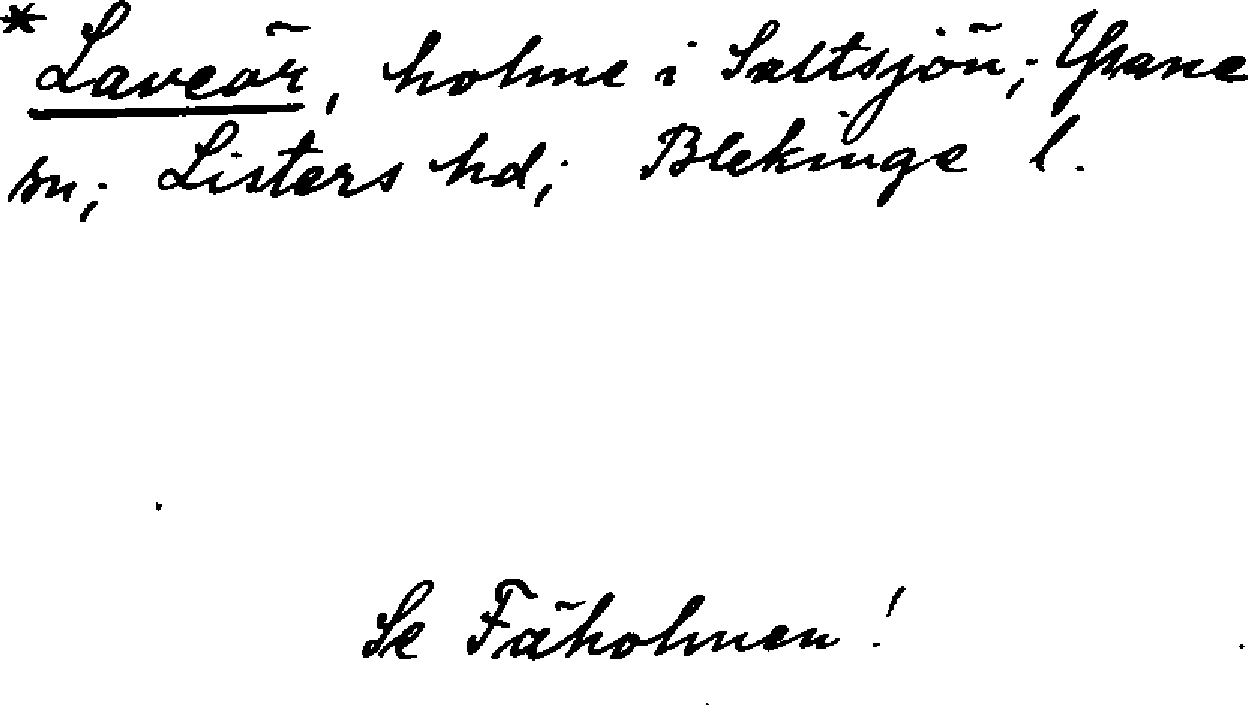 * Laveör, holme i Saltsjön; Ysane
sn; Listers hd; Blekinge l.
Se Fäholmen!